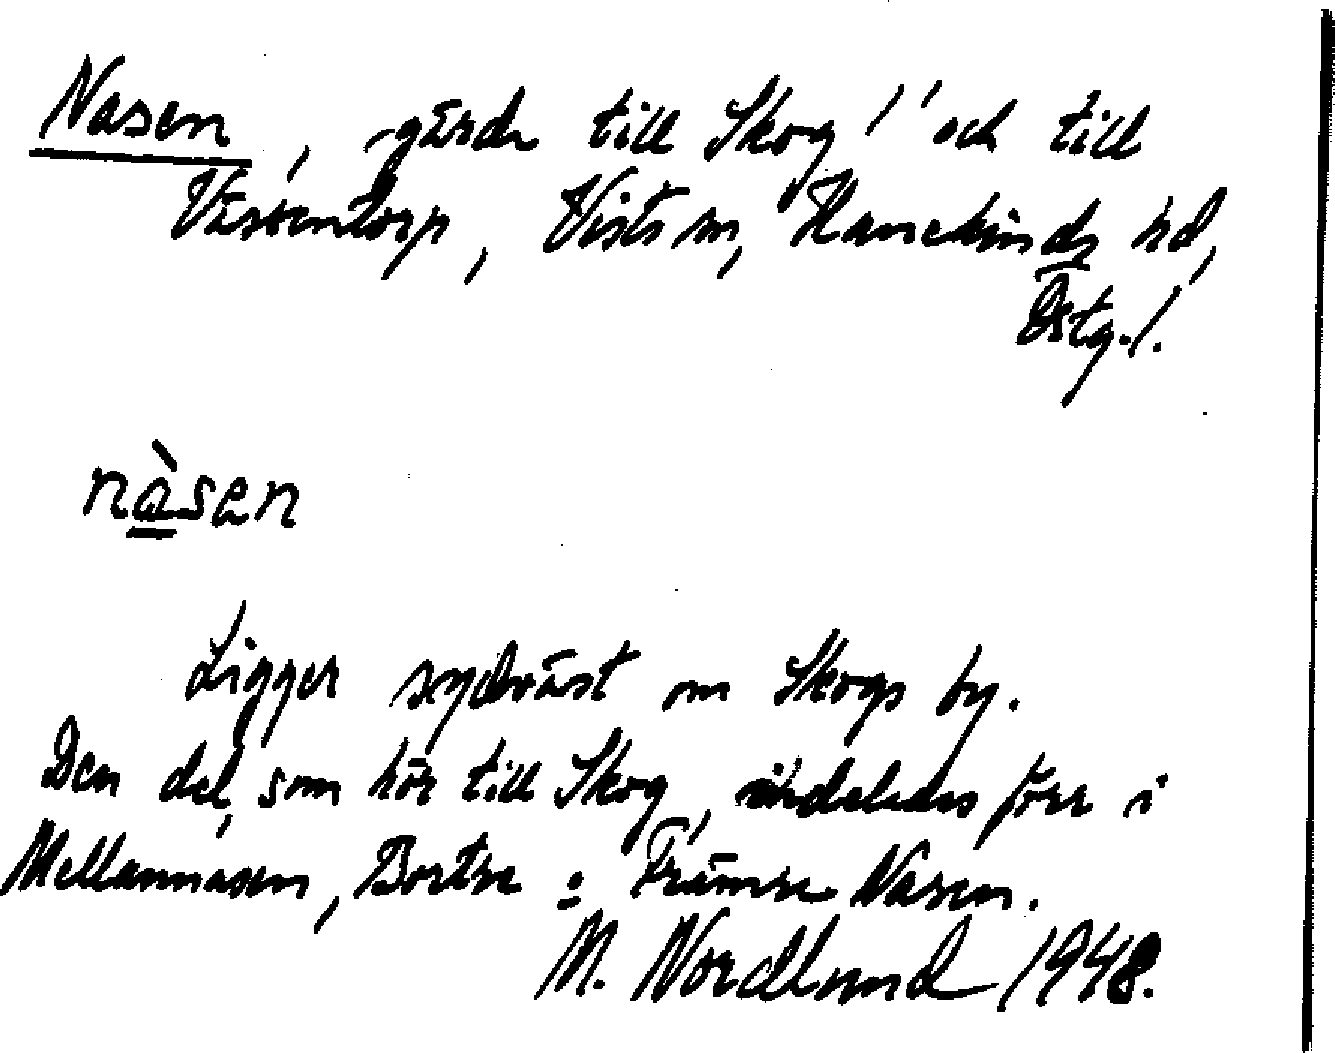 Nasen, gärde till Skog / och till
Västentorp, Vists sn, Hanekinds hd,
Östg./.
nàsen
Ligger sydväst om Skogs by.
Den del, som hör till Skog, indelades förr i
Mellannasen, Bortre o. Främre Nasen.
M. Nordlund 1948.